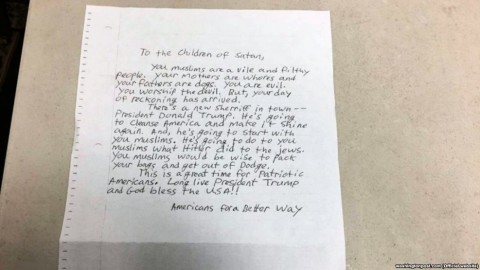 To the Children of Satan,
You muslims are a vile and filthy
people. Your mothers are whores and
your fathers are dogs. You are evil.
You worship the devil. But, your day
of reckoning has arrived.
There's a new sherriff in town --
President Donald Trump. He's going
to cleanse America and make it shine
again. And, he's going to start with
you muslims. He's going to do to you
muslims what Hitler did to the Jews.
You muslims would be wise to pack
your bags and get out of Dodge.
This is a great time for Patriotic
Americans. Long live President Trump
and God bless the USA!!
Americans for a Better Way